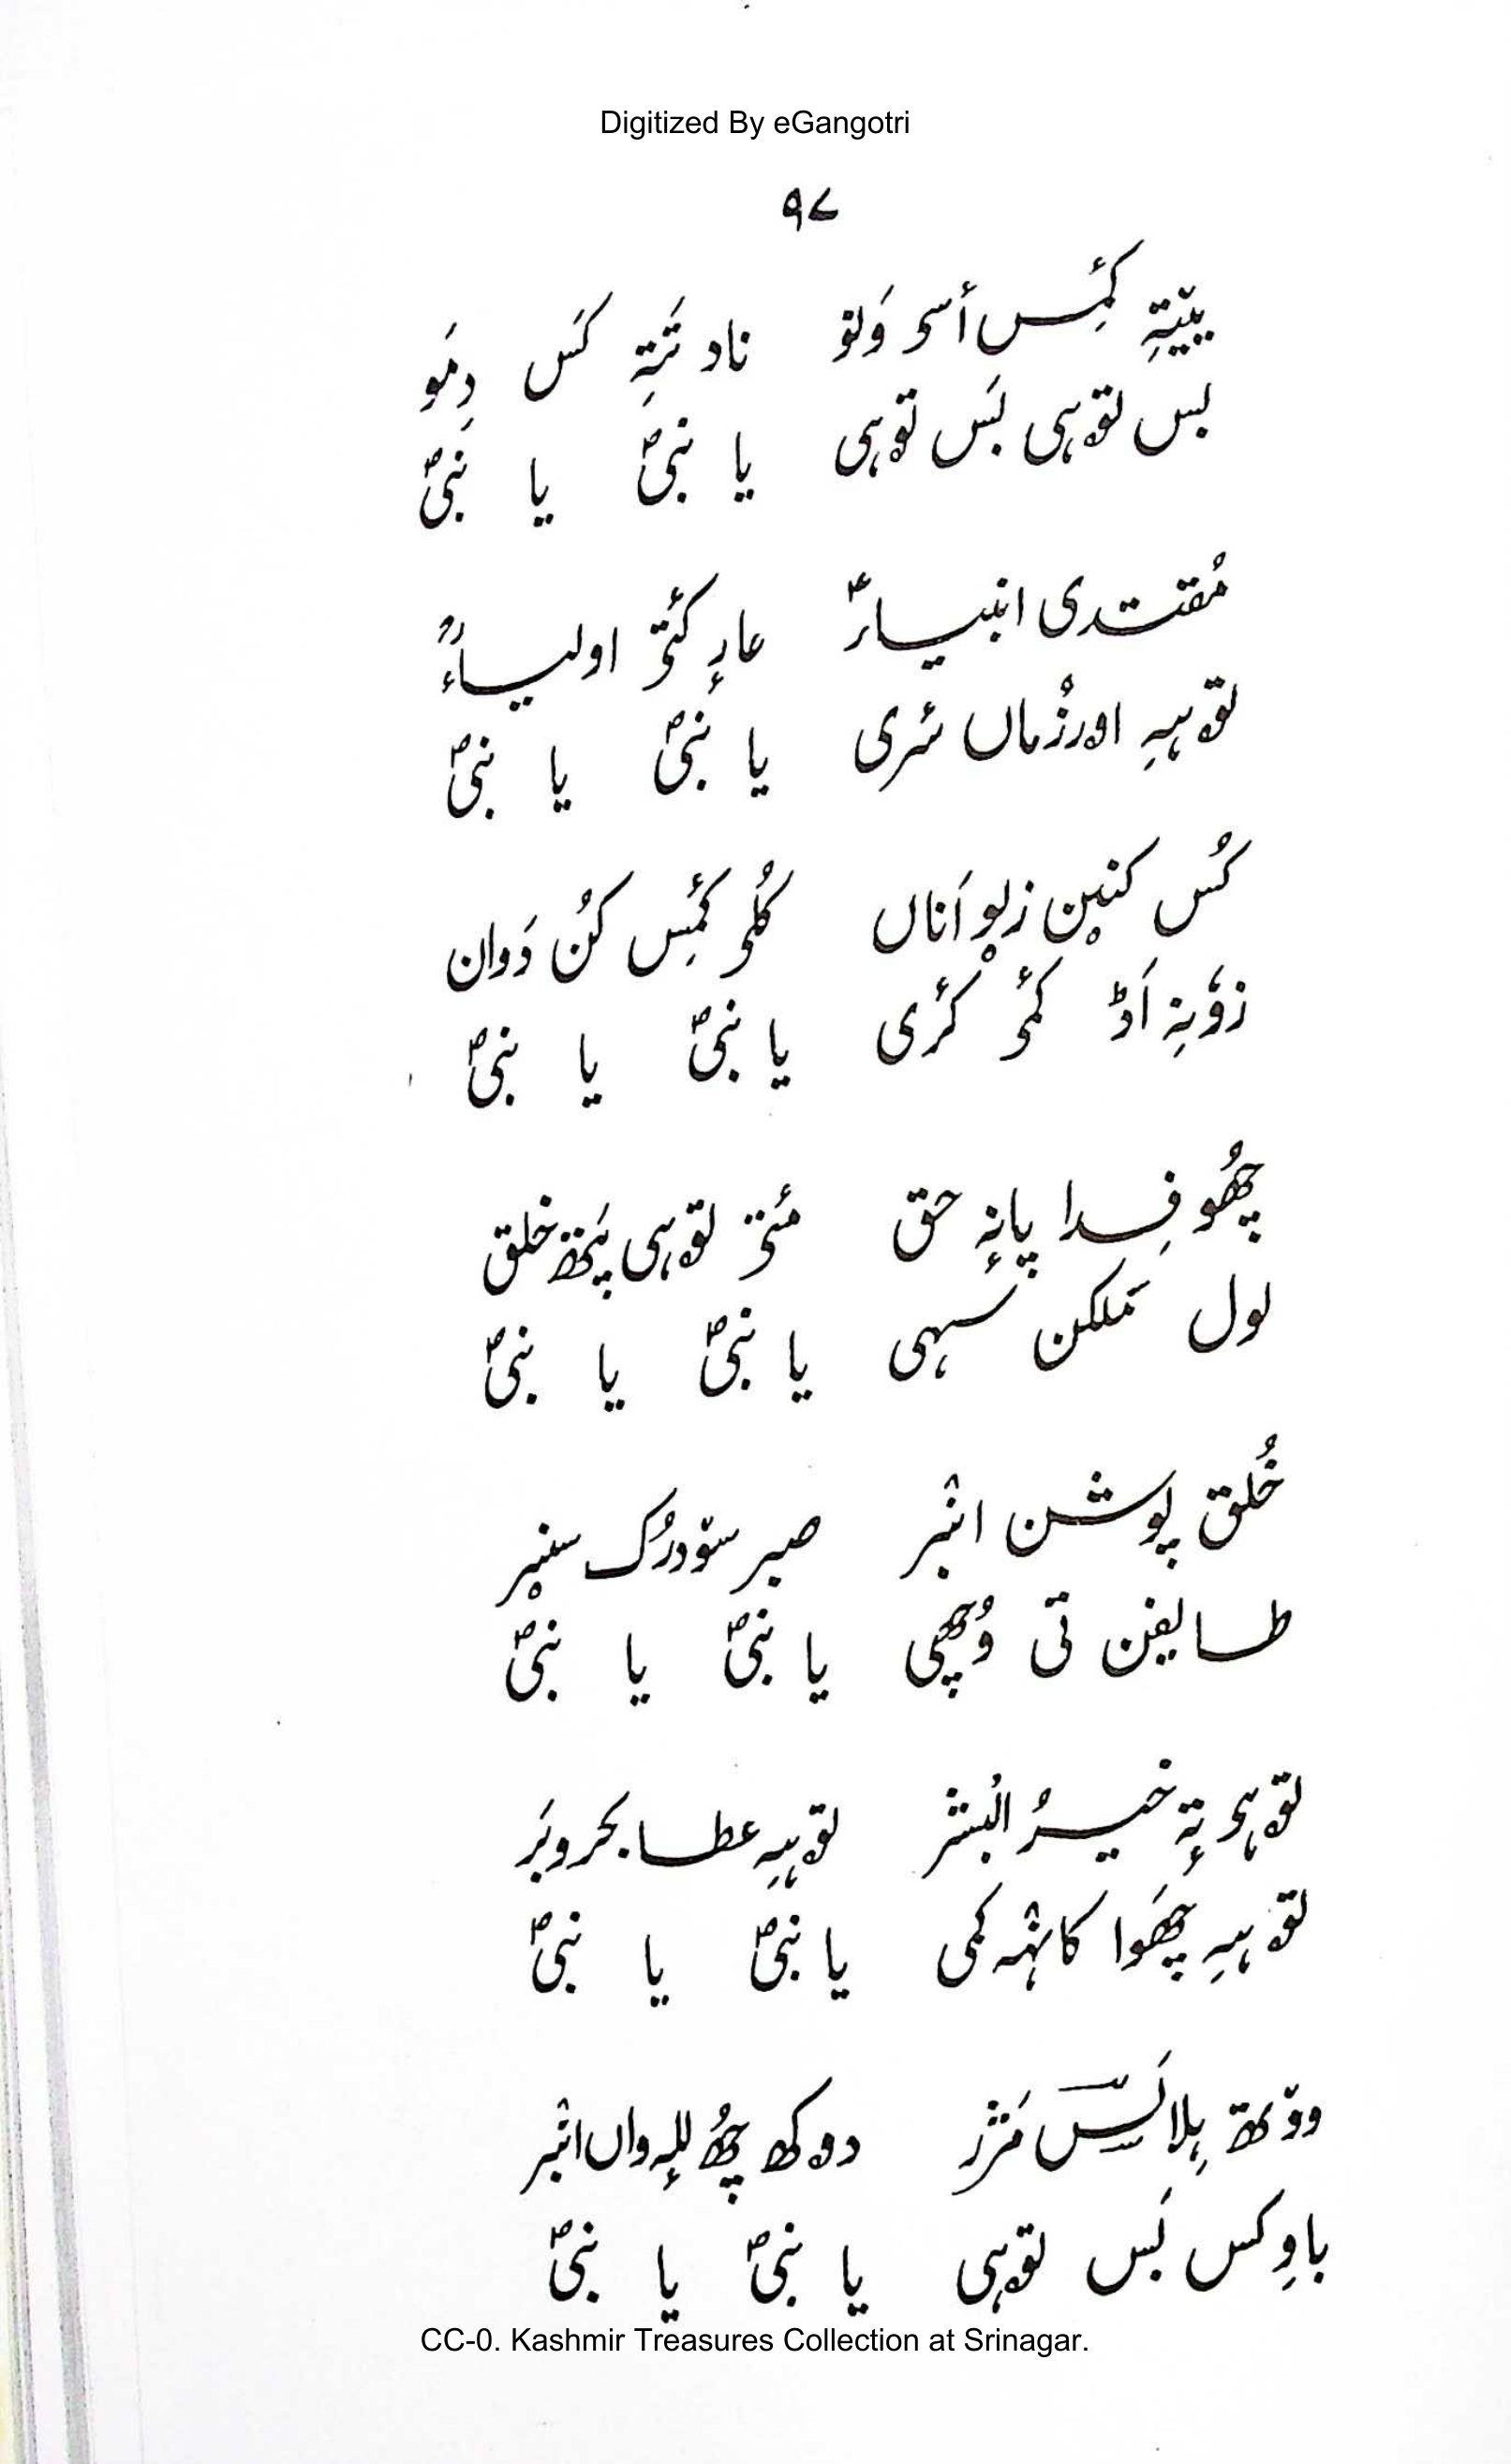 Digitized By eGangotri
۹۷
کَمِس أسۍ وَنو ناد تَتہِ کَس دِمَو
بس تۆہی بَس تۆہی یا نبیؐ یا نبیؐ
مُقتدی انبیاءؑ عارِ کٔتۍ اولیاءؒ
تۆہہِ اورزُماں سٔری یا نبیؐ یا نبیؐ
کُس کنین زیو اَناں کُلۍ کَمِس کُن دَوان
زوٗنہِ اَڈ کٔمۍ کٔری یا نبیؐ یا نبیؐ
چھُو فِدا پانہٕ حق مٔتۍ تۆہی پَتھ خلق
لول مَلکن سہی یا نبیؐ یا نبیؐ
خُلق پوشن انٛبر صبر سۆدرُک سنیر
طایفن تی وُچھی یا نبیؐ یا نبیؐ
تۆہۍ تہٕ خیرُ البشر تۆہہِ عطا بحر و بَر
تۆہہِ چھَوا کانٛہہ کمی یا نبیؐ یا نبیؐ
وۆتھ بِلالَسؓ مَنٛزر دوکھ چھُ للہٕ وان انٛبر
باوِ کس بَس تۆہی یا نبیؐ یا نبیؐ
CC-0. Kashmir Treasures Collection at Srinagar.